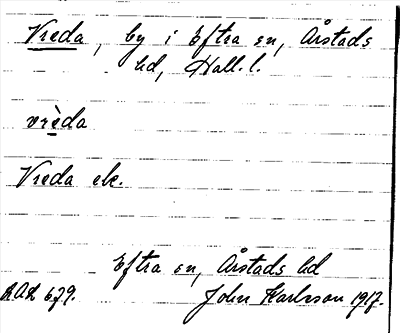 Vreda, by i Eftra sn, Årstads
hd, Hall. l.
vrèda
Vreda ek.
Eftra sn, Årstads hd
RAÄ 679. John Karlsson 1917.